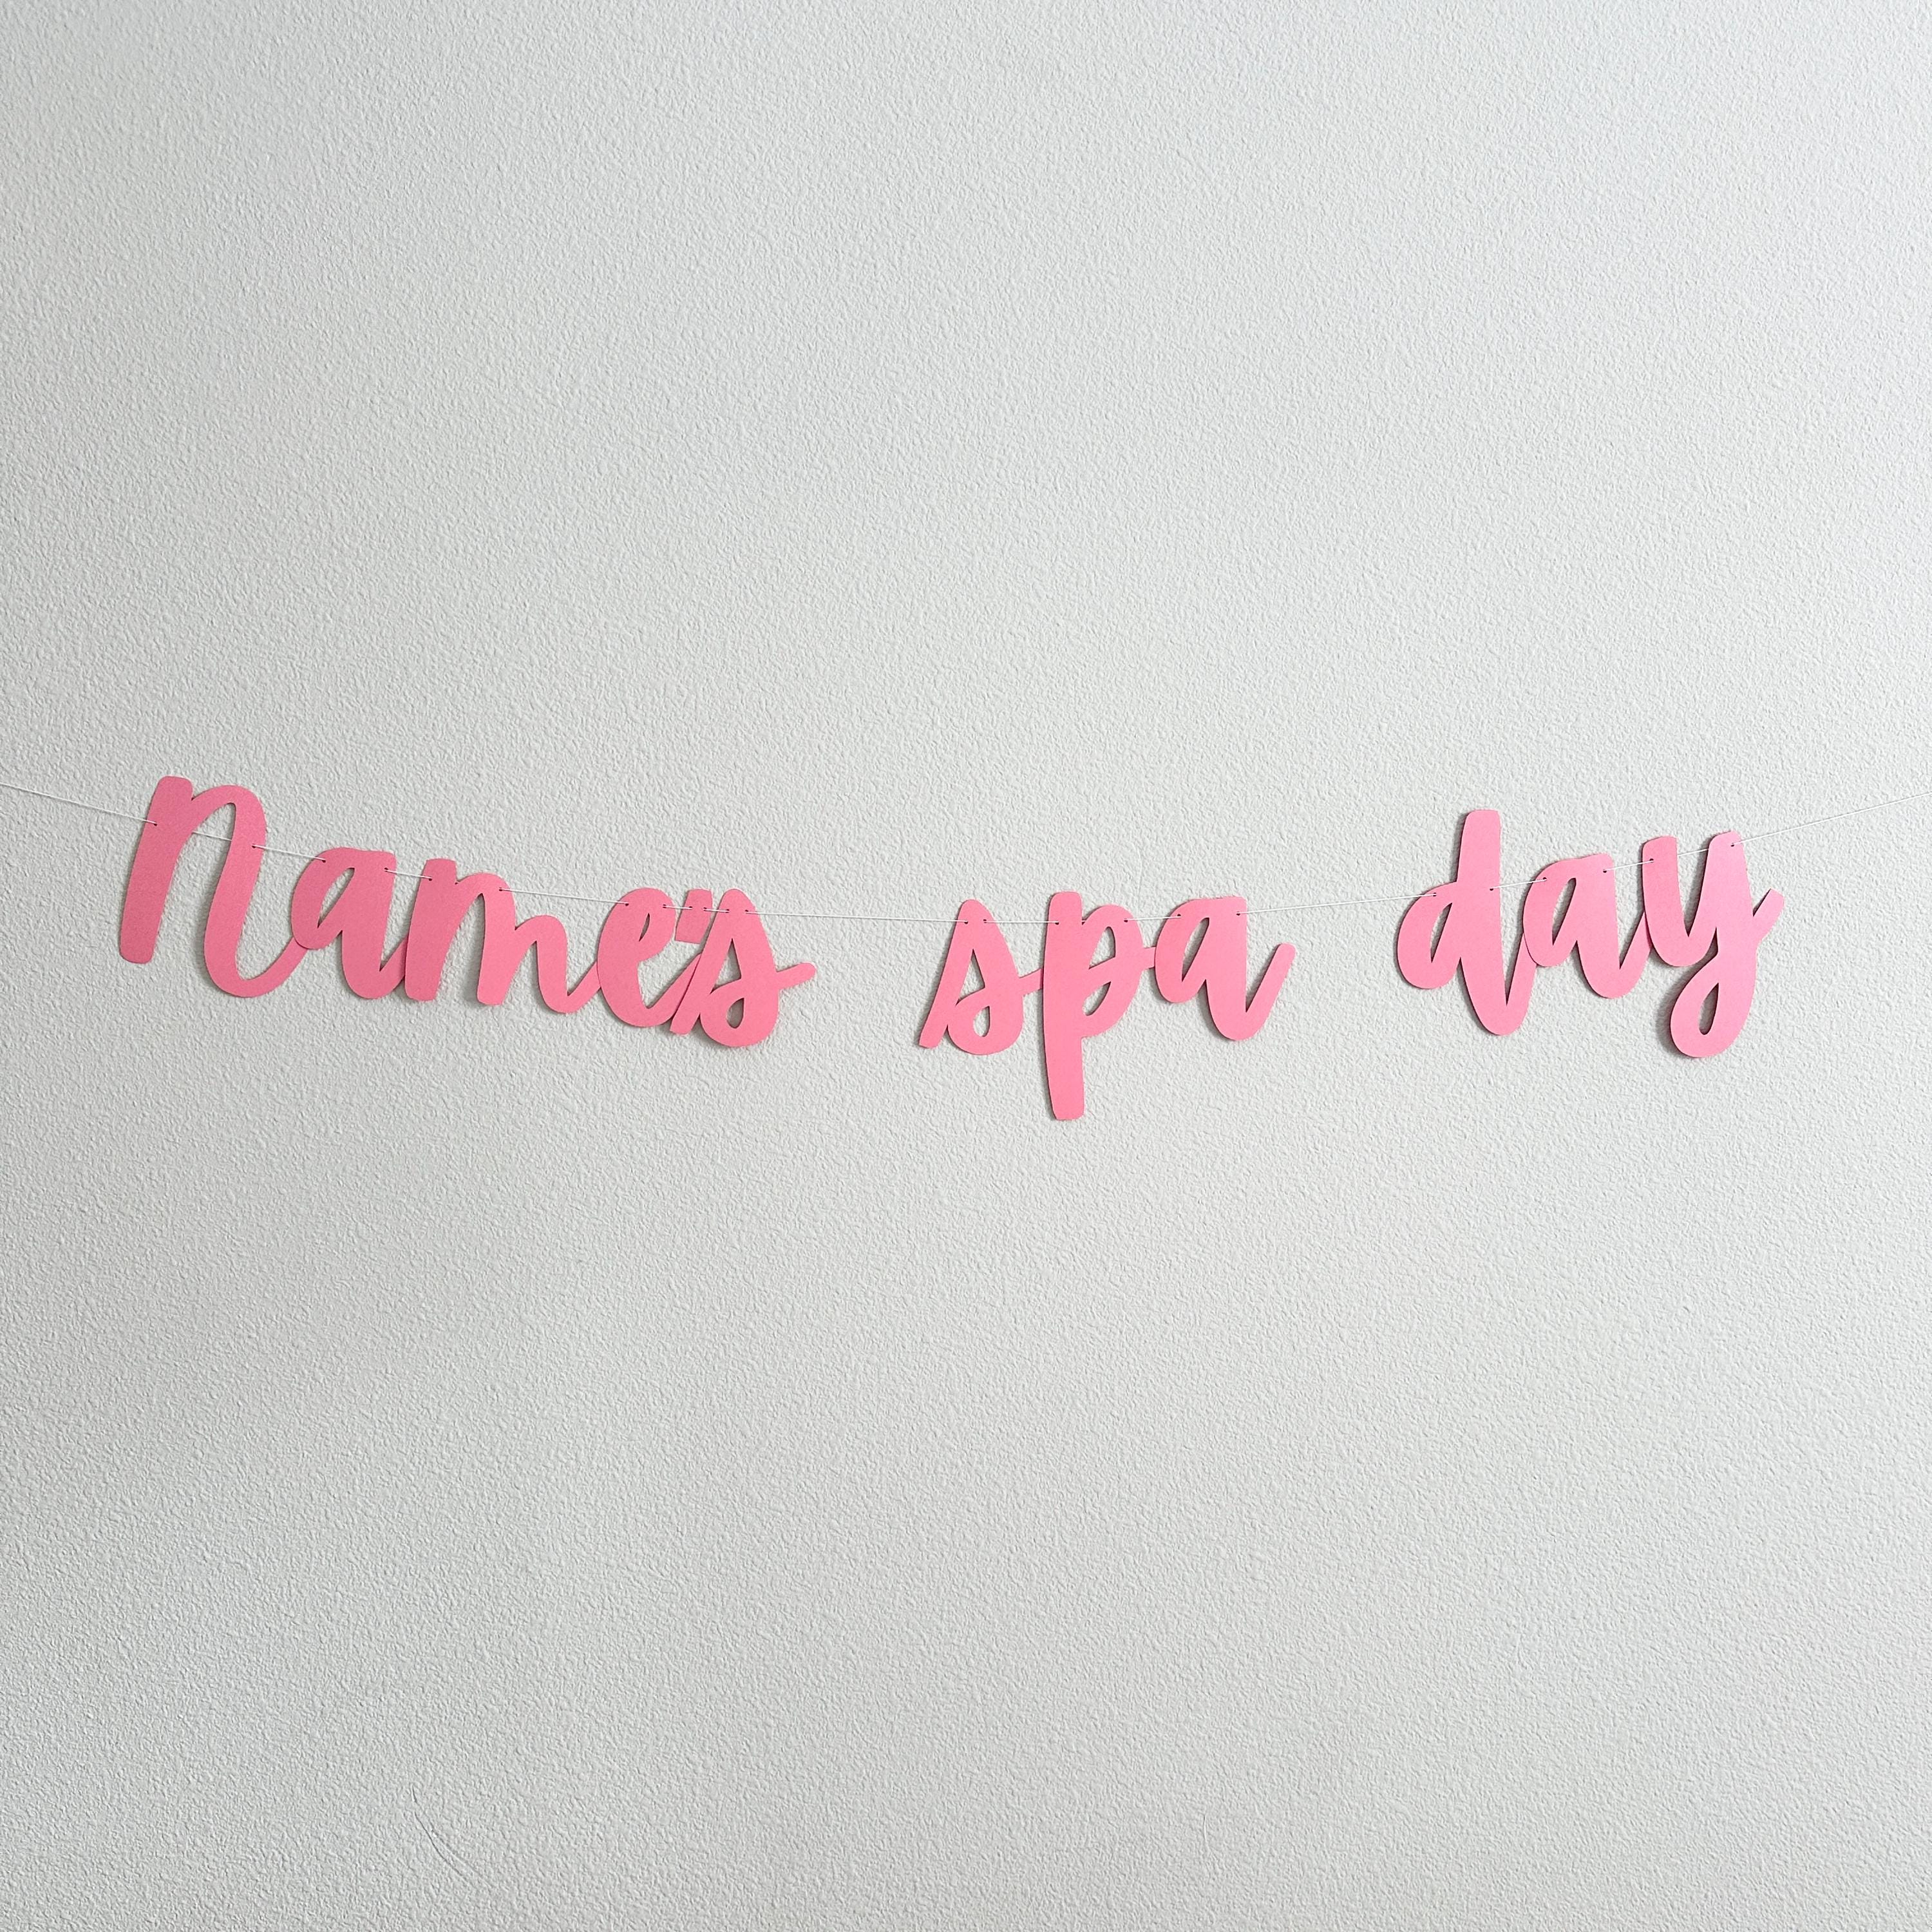 name's spa day